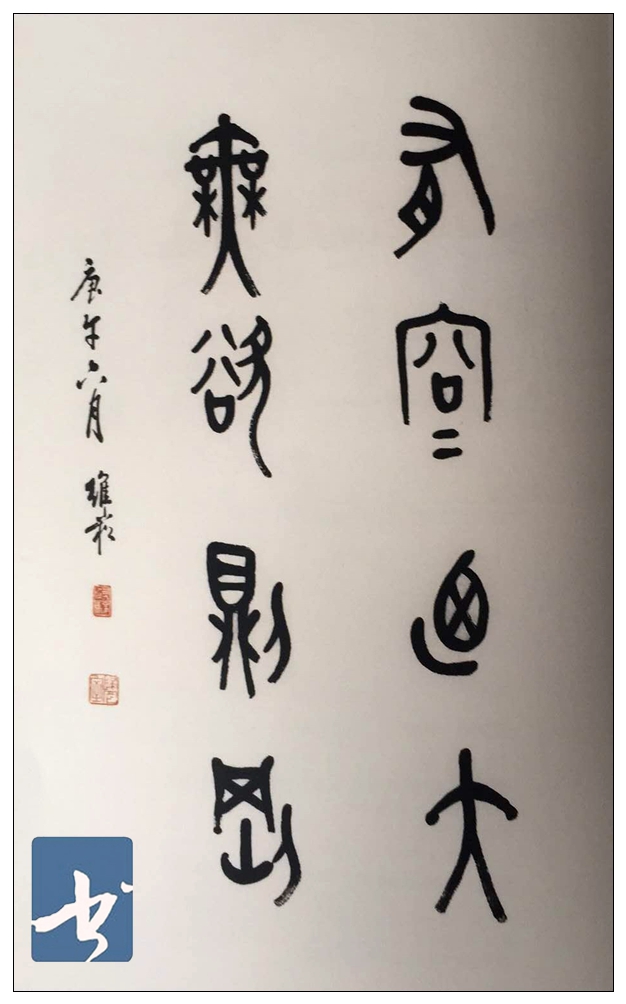 有容迺大
無欲則剛
庚午六月 維崧
书